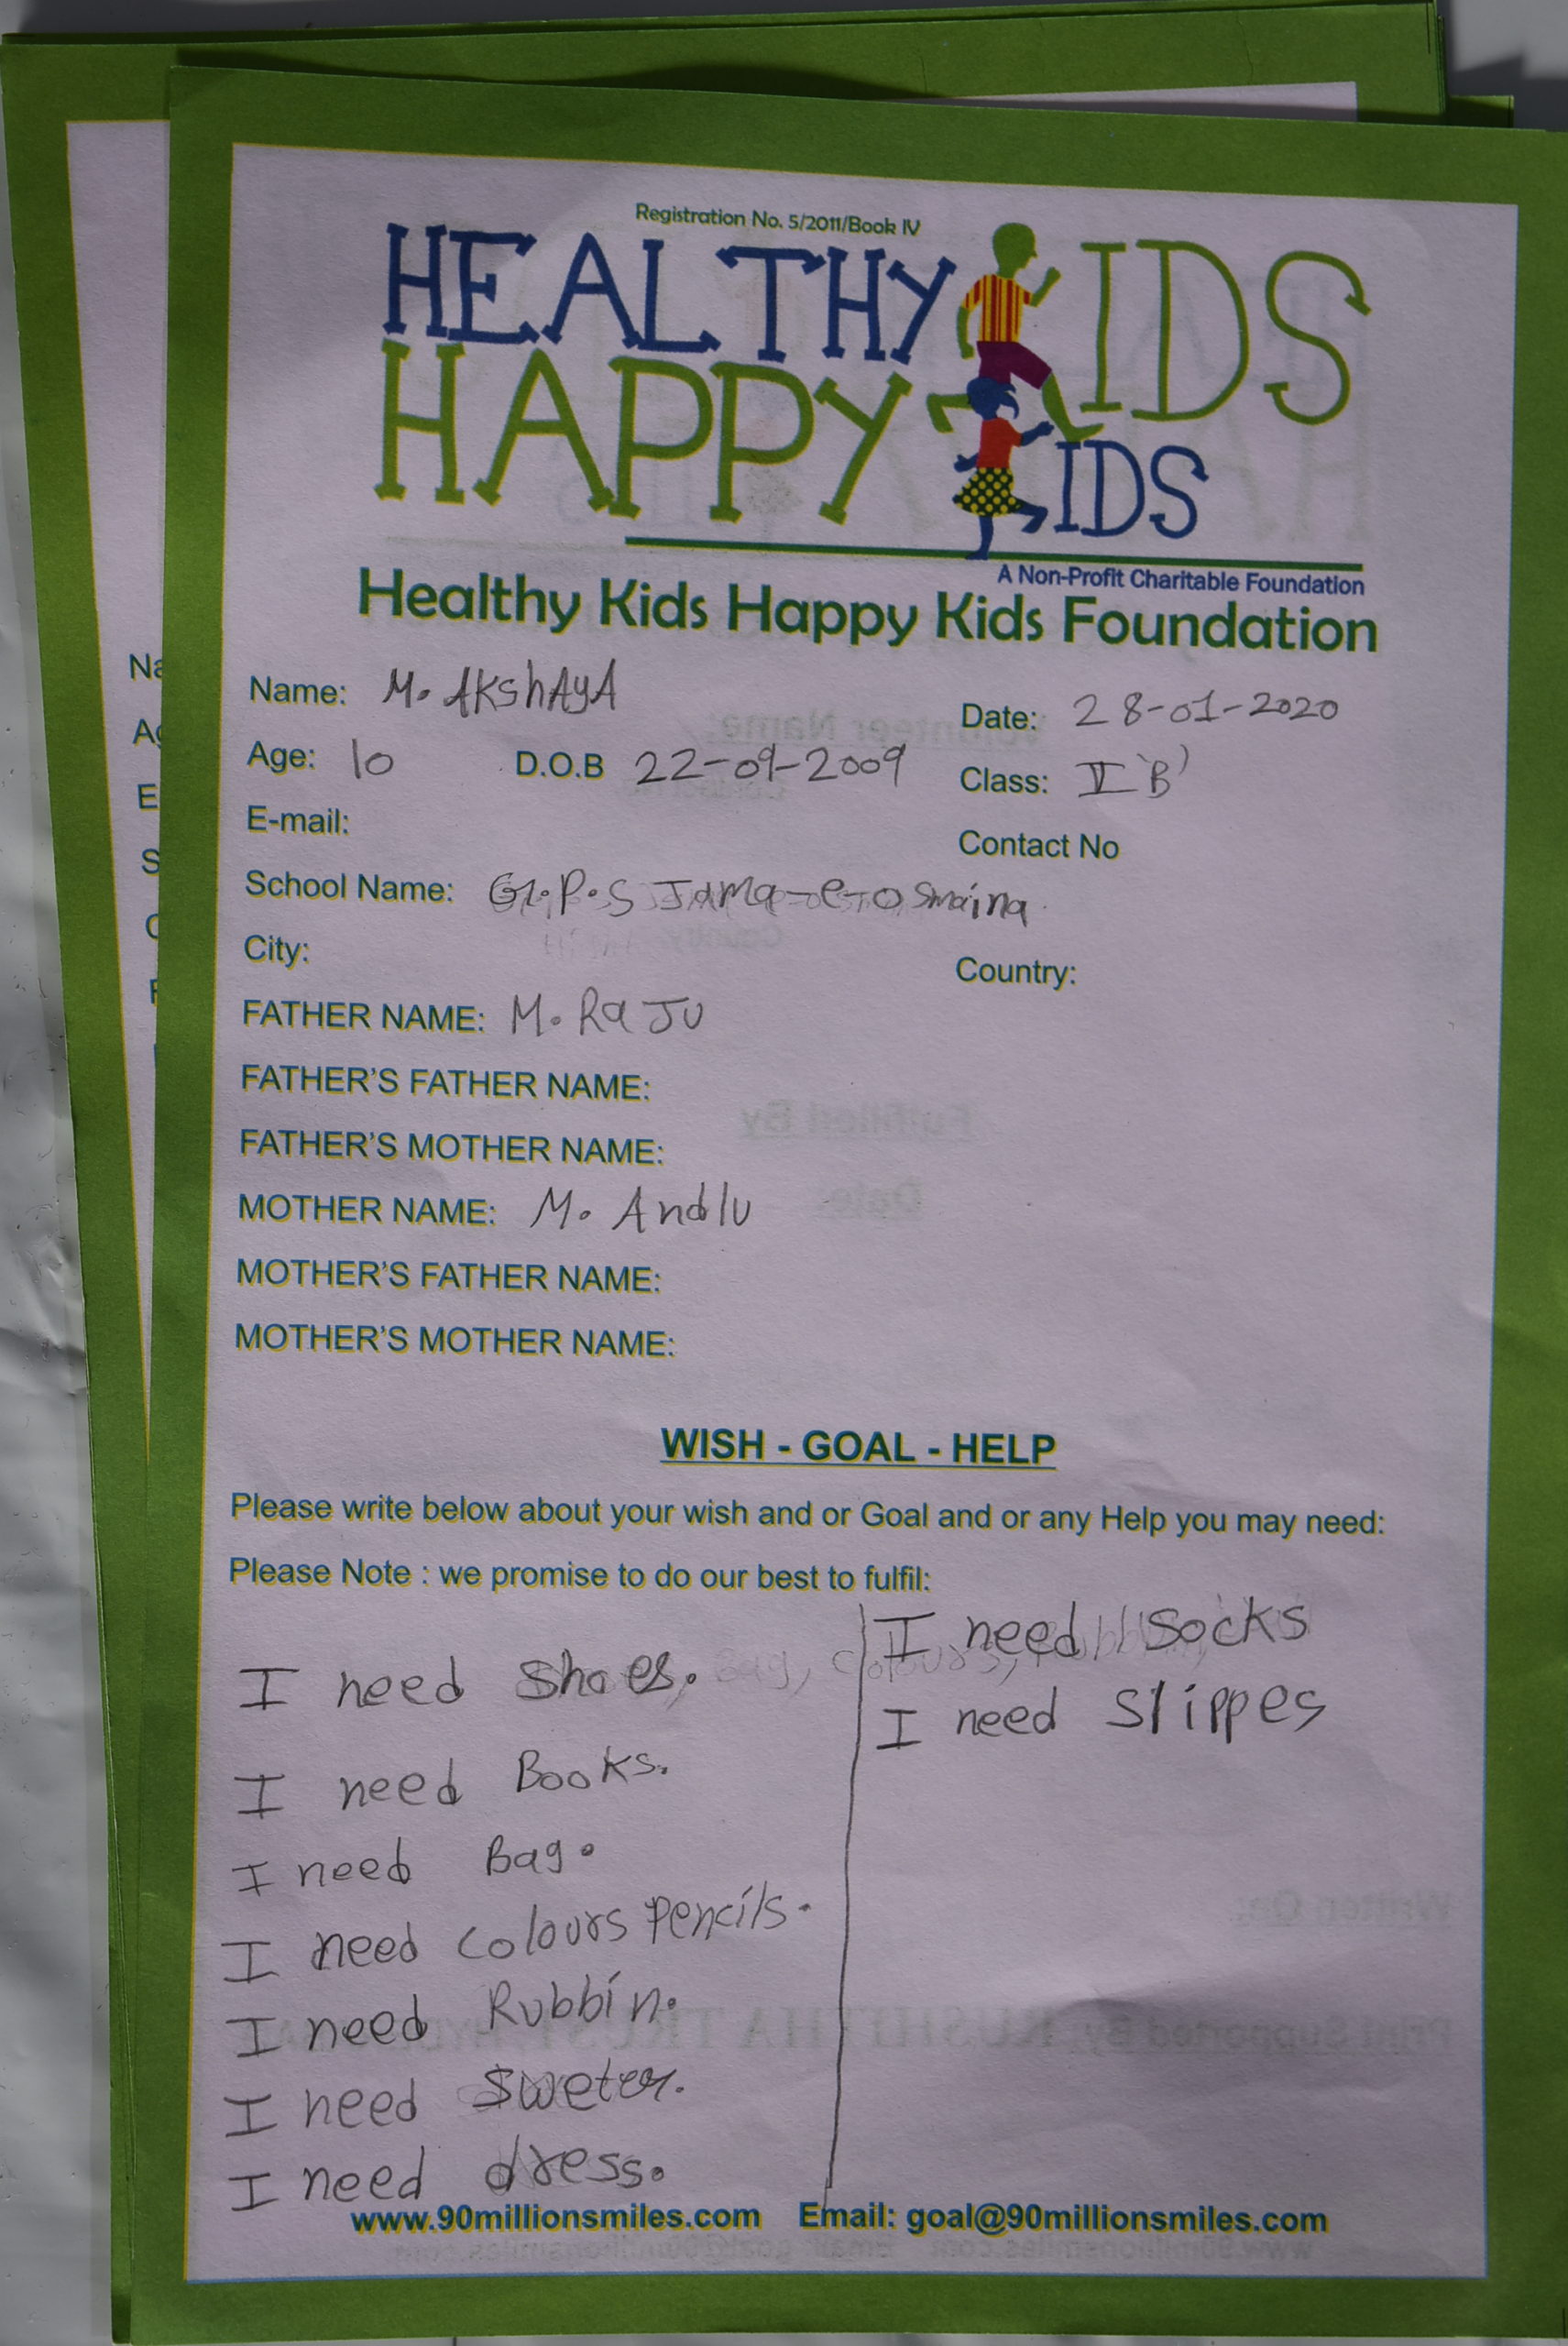 Registration No. 5/2011/Book IV
HEALTHY KIDS
HAPPY KIDS
A Non-Profit Charitable Foundation
Healthy Kids Happy Kids Foundation
Name: M. AKshAyA
Date: 28-01-2020
Age: 10 D.O.B 22-09-2009 Class: V 'B'
E-mail:
Contact No
School Name: G.P.S Jama-e-osmaina
City:
Country:
FATHER NAME: M. RaJu
FATHER'S FATHER NAME:
FATHER'S MOTHER NAME:
MOTHER NAME: M. Andlu
MOTHER'S FATHER NAME:
MOTHER'S MOTHER NAME:
WISH - GOAL - HELP
Please write below about your wish and or Goal and or any Help you may need:
Please Note : we promise to do our best to fulfil:
I need Shoes.
I need Books.
I need Bag.
I need colours Pencils.
I need Rubbin.
I need Sweter.
I need dress.
I need Socks
I need Slippes
www.90millionsmiles.com Email: goal@90millionsmiles.com